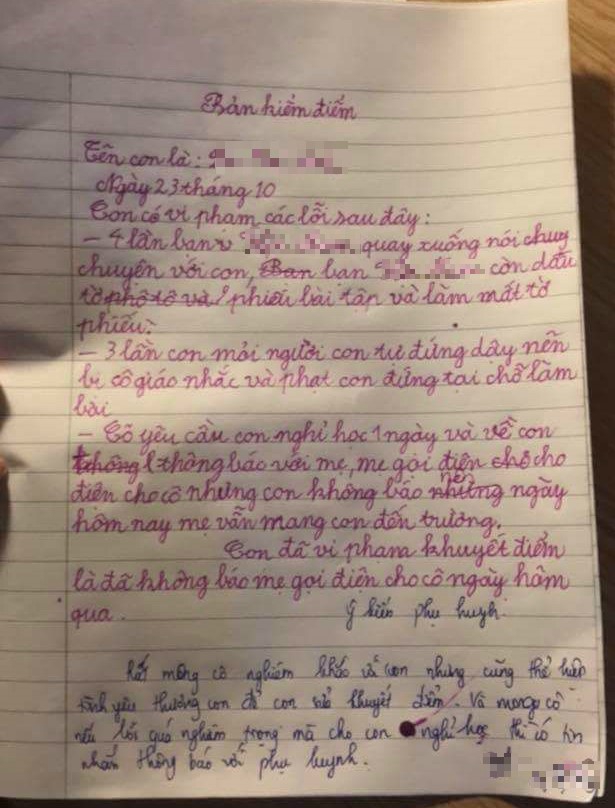 Bản kiểm điểm
Tên con là:
Ngày 23 tháng 10
Con có vi phạm các lỗi sau đây:
- 4 lần bạn quay xuống nói chuyện
chuyện với con, Bạn bạn còn dấu
tờ phô tô và phiếu bài tập và làm mất tờ
phiếu.
- 3 lần con mỏi người con tự đứng dậy nên
bị cô giáo nhắc và phạt con đứng tại chỗ làm
bài
- Cô yêu cầu con nghỉ học 1 ngày và về con
không thông báo với mẹ, mẹ gọi điện cho cho
điện cho cô nhưng con không báo nhưng nên ngày
hôm nay mẹ vẫn mang con đến trường.
Con đã vi phạm khuyết điểm
là đã không báo mẹ gọi điện cho cô ngày hôm
qua.
Ý kiến phụ huynh:
Rất mong cô nghiêm khắc với con nhưng cũng thể hiện
tình yêu thương con để con sửa khuyết điểm. Và mong cô
nếu lỗi quá nghiêm trọng mà cho con nghỉ học thì có tin
nhắn thông báo với phụ huynh.